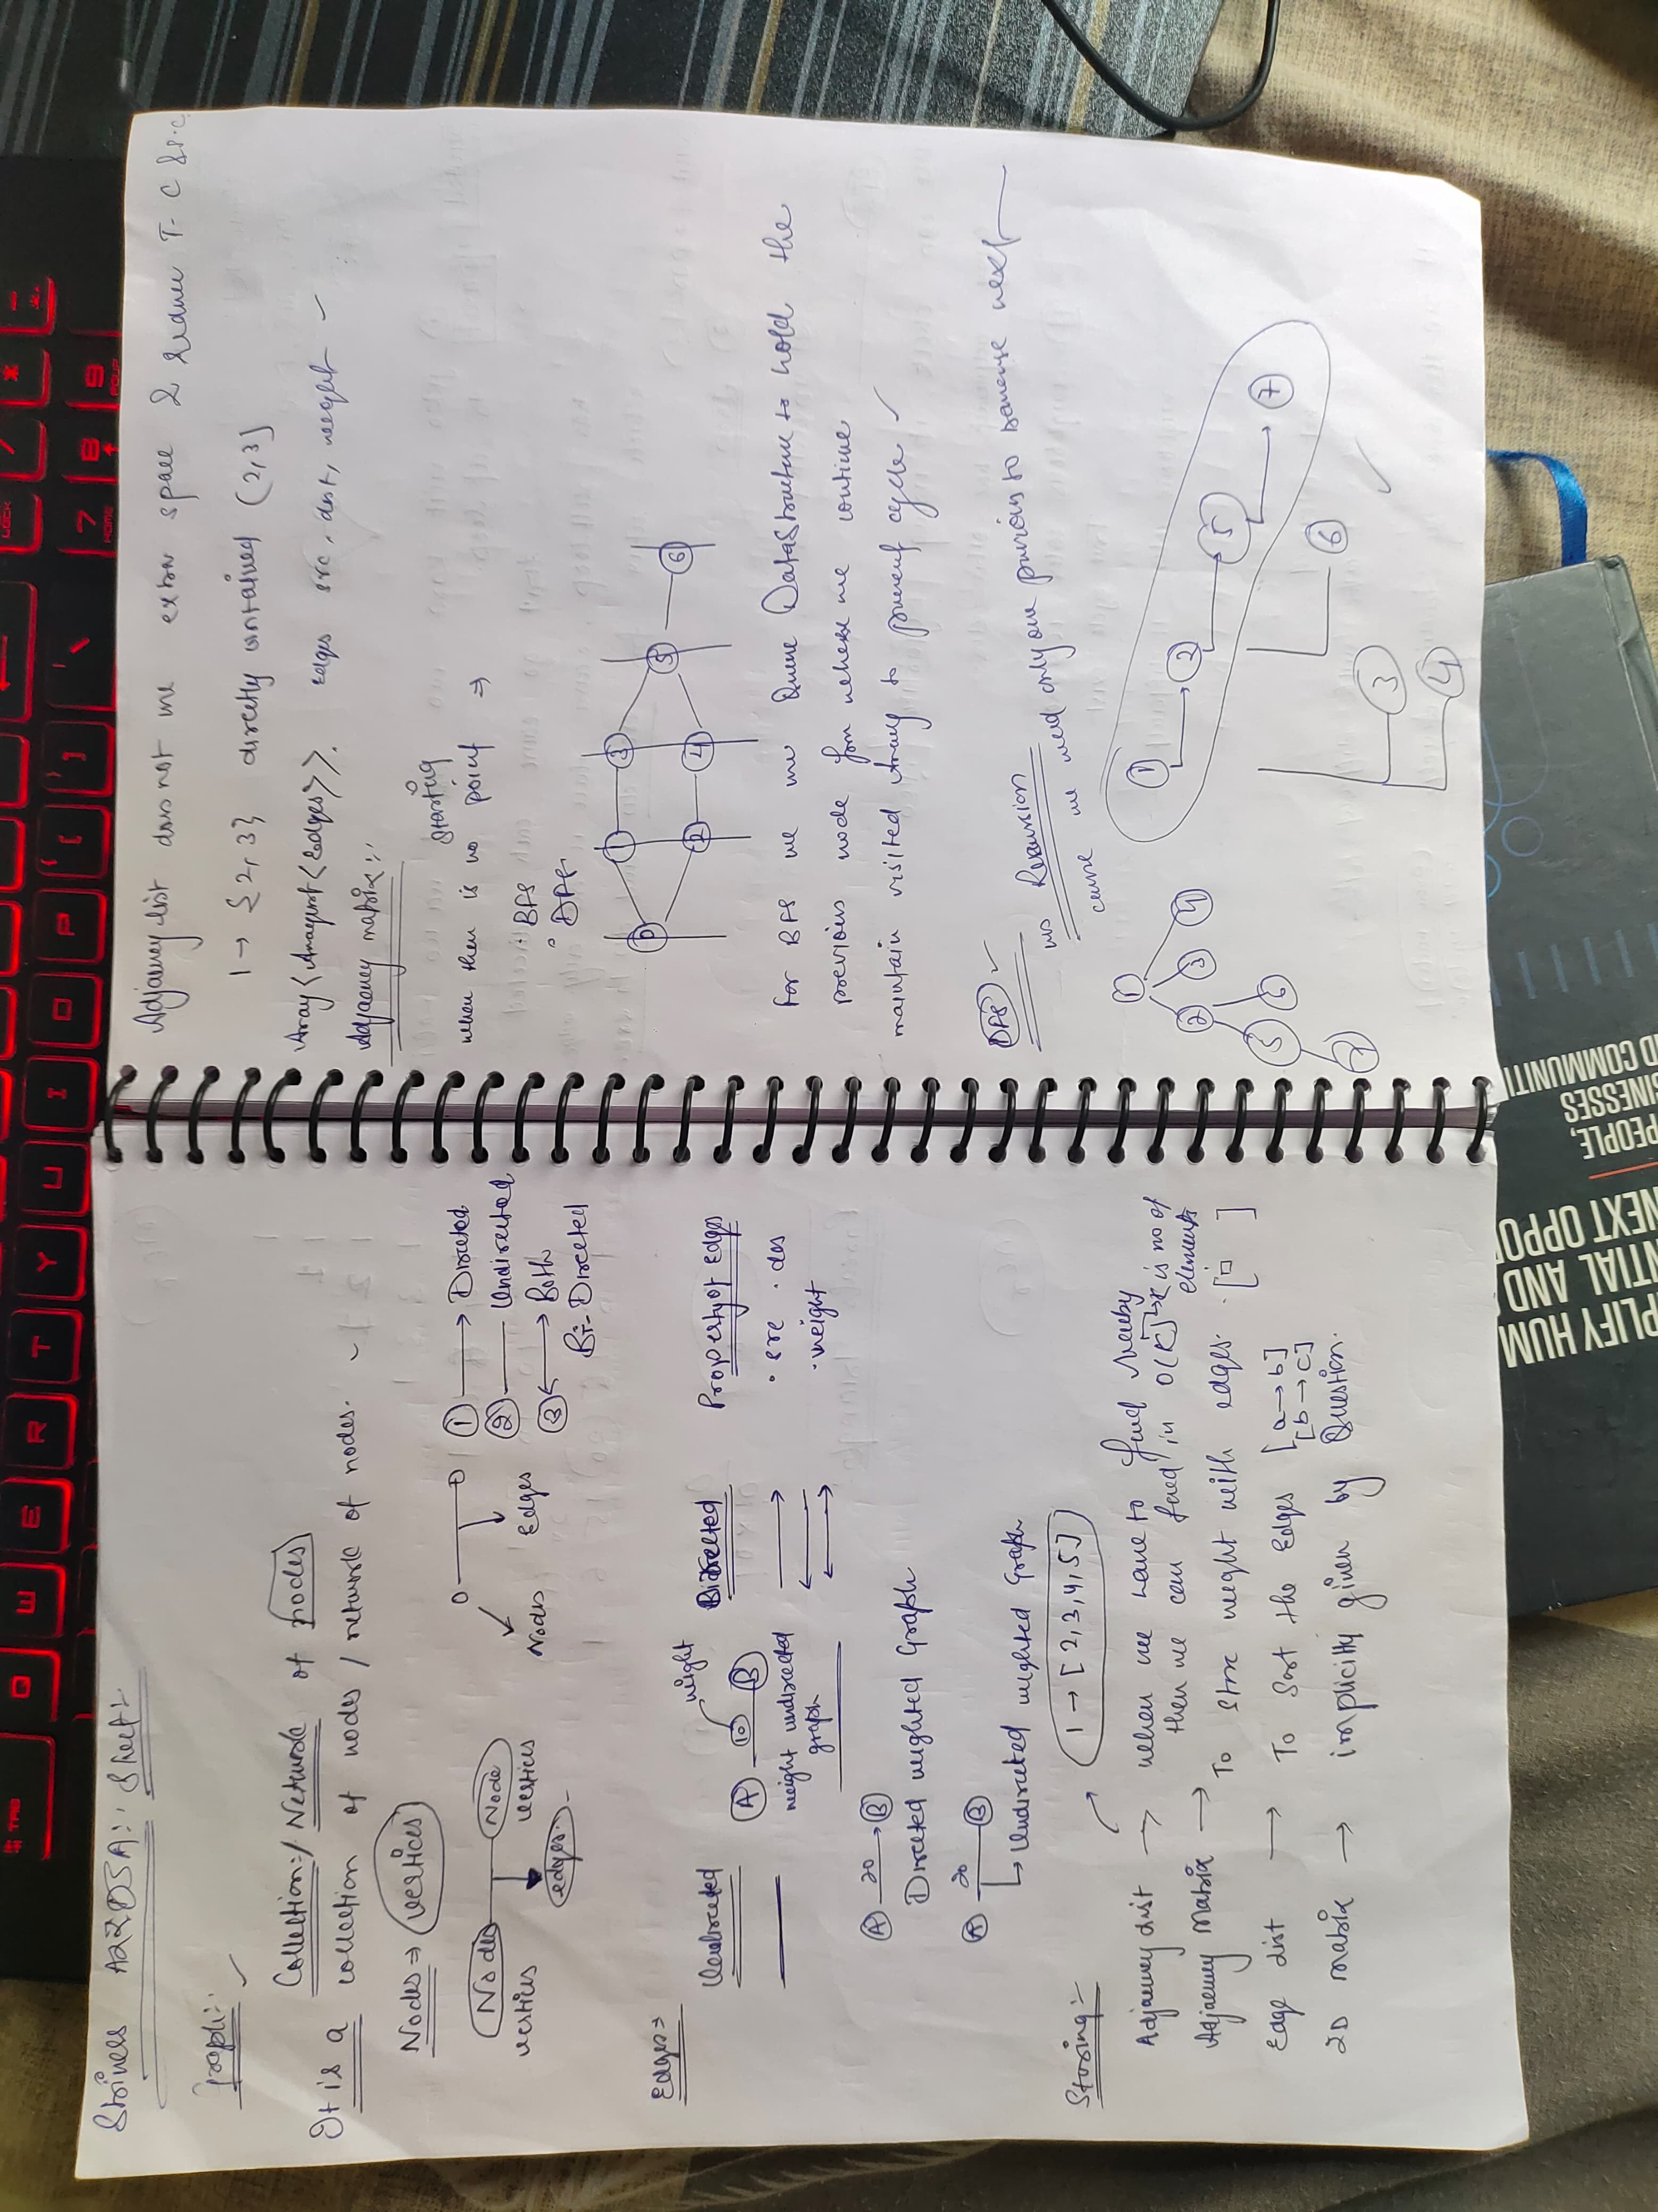 TAB Q W E R T Y U I O P { [ } ] \ LOCK / * -
7 HOME 8 9 PGUP
Strivers A2Z DSA:: Sheet:-
Graph:-
Collection:/ Network of nodes
It is a collection of nodes / network of nodes.
Nodes ⇒ vertices
Nodes Node
vertices vertices
edges.
Nodes Edges
1 → Directed
2 — Undirected
3 ↔ Both
Bi-Directed
Edges ⇒
Undirected
weight
A 10 B
weight undirected
graph
Bidirected
Property of edges
· src · des
· weight
A 20 → B
Directed weighted Graph
A 20 B
↳ Undirected weighted Graph
Storing:-
1 → [2,3,4,5]
Adjaceny List → when we have to find Nearby
then we can find in O(K) ↳ K is no of
elements
Adjaceny Matrix → To store weight with edges. [ ]
Edge List → To Sort the Edges [a→b]
[b→c]
2D matrix → implicitly given by Question.
Adjaceny list does not use extra space & reduce T.C & S.C
1 → {2, 3} directly contained (2,3]
Array<Arraylist<Edges>>. edges src, dest, weight
Adjaceny matrix::
starting
when then is no point ⇒
· BFS
· DFS
0 1 3 5 6
2 4
For BFS we use Queue DataStructure to hold the
previous node from where we continue
maintain visited Array to prevent cycle ✓
DFS ✓
use Recursion
cause we need only one previous to traverse next
1
2 3 4
5 6
7
1
2
5
7
6
3
4
PLIFY HUM
NTIAL AND
NEXT OPPO
PEOPLE,
SINESSES
ND COMMUNITI